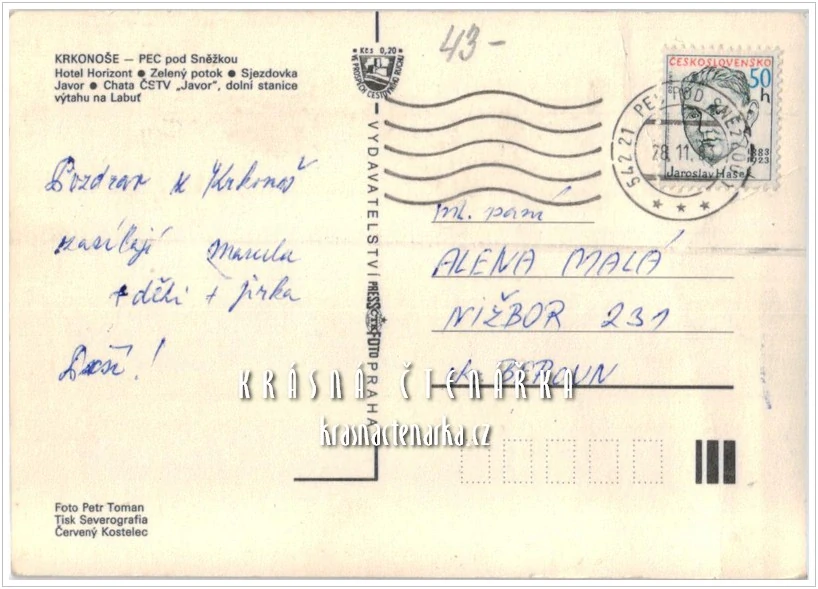 KRKONOŠE — PEC pod Sněžkou
Hotel Horizont ● Zelený potok ● Sjezdovka
Javor ● Chata ČSTV „Javor", dolní stanice
výtahu na Labuť
Pozdrav z Krkonoš
zasílají Marcela
+ děti + Jirka
Foto Petr Toman
Tisk Severografia
Červený Kostelec
Kčs 0,20
VE PROSPĚCH CESTOVNÍHO RUCHU
VYDAVATELSTVÍ PRESSFOTO PRAHA
43-
ČESKOSLOVENSKO
50 h
1883
1923
Jaroslav Hašek
542 21 PEC POD SNĚŽKOU
28.11.
ml. paní
ALENA MALÁ
NIŽBOR 231
ok. BEROUN
KRÁSNÁ ČTENÁŘKA
krasnactenarka.cz